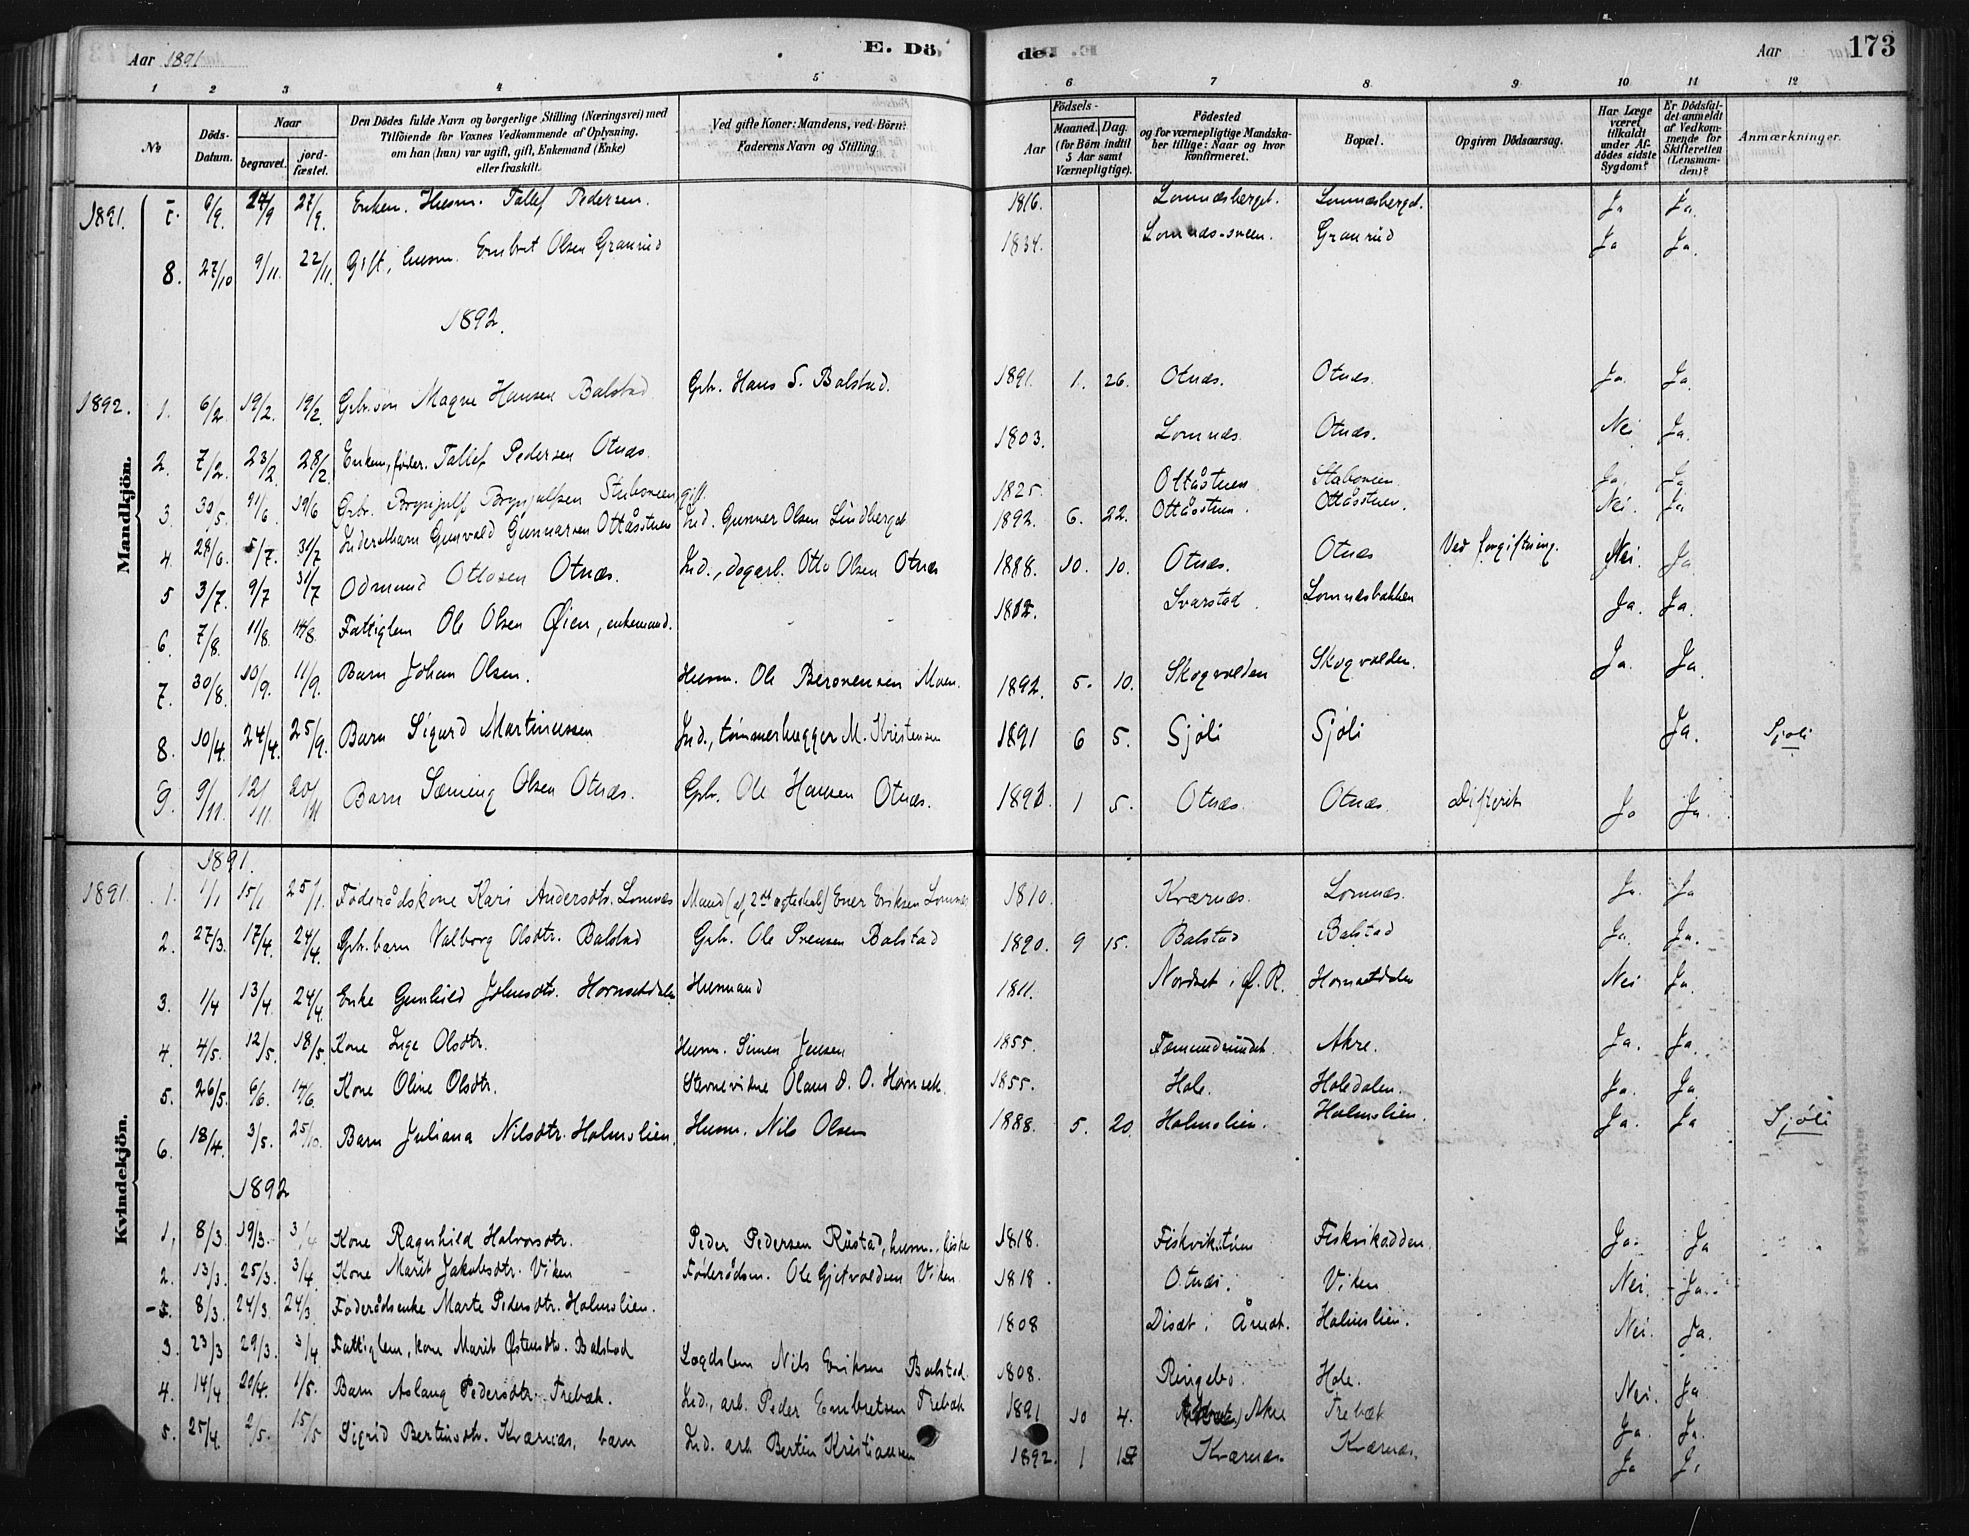 Aar 1891 E. Dö de. Aar 173
1 2 3 4 5 6 7 8 9 10 11 12
No Döds-Datum. Naar begravet. jord-fæstet. Den Dödes fulde Navn og borgerlige Stilling (Næringsvei) med Tilföiende for Voxnes Vedkommende af Oplysning, om han (hun) var ugift, gift, Enkemand (Enke) eller fraskilt. Ved gifte Koner: Mandens, ved Börn: Faderens Navn og Stilling. Födsels- Aar Maaned. Dag. (for Börn indtil 5 Aar samt Værnepligtige). Födested og for værnepligtige Mandska-ber tillige: Naar og hvor konfirmeret. Bopæl. Opgiven Dödsaarsag. Har Læge været tilkaldt under Af-dödes sidste Sygdom? Er Dödsfal-det anmeldt af Vedkom-mende for Skifteretten (Lensman-den)? Anmærkninger.
Mandkjön.
1891. 7. 9/9. 24/9 27/9. Enkem. Husm. Tallef Pedersen. 1816. Lomnæsberget. Lomnæsberget. Ja Ja.
8. 27/10 9/11. 22/11. Gift, husm. Embret Olsen Granrud 1834. Lomnæs-sveen. Granrud Ja Ja.
1892.
1892. 1. 6/2. 19/2. 19/2. Gbr. søn Magne Hansen Balstad Gbr. Hans S. Balstad. 1891. 1. 26. Otnæs. Otnæs. Ja. Ja.
2. 7/2. 23/2. 28/2. Enkem, føder. Tallef Pedersen Otnæs. 1803. Lomnæs. Otnæs. Nei Ja.
3. 30/5. 11/6. 19/6 Gbr. Brynjulf Brynjulfsen Stubsveen, gift. 1825. Ottåstuen Ja. Ja
4. 28/6. 5/7. 31/7 Inderstbarn Gunvald Gunnarsen Ottåstuen Ind. Gunner Olsen Lindberget 1892. 6. 22. Ottåstuen. Ottåstuen. Nei. Ja
5 3/7. 9/7 31/7 Odmund Ottosen Otnæs. Ind., dagarb. Otto Olsen Otnæs 1888. 10. 10. Otnæs. Otnæs Ved forgiftning. Nei. Ja
6. 7/8. 11/8. 14/8. Fattiglem Ole Olsen Øien, enkemand. 1812. Svarstad. Lomnæsbakken Ja. Ja.
7. 30/8. 10/9. 11/9. Barn Johan Olsen. Husm. Ole Bersvensen Moen. 1892. 5. 10. Skogvolden Skogvolden. Ja. Ja
8. 10/4. 24/4. 25/9. Barn Sigurd Martinussen Ind., tømmerhugger M. Kristensen 1891 6 5. Sjöli Sjöli Ja. Sjøli
9. 9/11. 12/11. 20/11 Barn Sæming Olsen Otnæs. Gbr. Ole Hansen Otnæs. 1 5. Otnæs. Otnæs. Difterit Ja Ja.
Kvindekjön.
1891.
1891. 1. 1/1 15/1 25/1. Føderådskone Kari Andersdtr. Lomnæs Mand (af 2det ægteskab) Ener Eriksen Lomnæs 1810. Kværnæs. Lomnæs. Ja. Ja
2. 27/3. 17/4. 24/4. Gbr. barn Valborg Olsdtr. Balstad Gbr. Ole Svensen Balstad 1890. 9 15. Balstad Balstad Ja. Ja.
3. 1/4 13/4 24/4. Enke Gunhild Johnsdtr. Hornsetdalen Husmand 1811. Nordset i Ø. R. Hornsetdalen Nei Ja.
4. 4/5. 12/5. 18/5 Kone Inge Olsdtr. Husm. Simen Jensen 1855. Fæmundsundet. Akre. Ja. Ja.
5. 26/5. 6/6. 14/6. Kone Oline Olsdtr. Olaus O. O. Hornset. 1855. Hole. Holedalen. Ja. Ja
6. 18/4. 3/5. 25/10. Barn Juliana Nilsdtr. Holmslien. Husm. Nils Olsen 1888. 5. 20. Holmslien. Holmslien. Ja. Ja Sjøli
1892
1, 8/3. 19/3. 3/4 Kone Ragnhild Halvorsdtr. Peder Pedersen Rustad, husm., fisker 1818. Fiskvik Fiskvikodden. Ja. Ja
2. 13/3. 25/3. 3/4. Kone Marit Jakobsdtr. Viken Føderådsm. Ole Gjetvoldsen Viken 1818. Otnæs. Viken Nei. Ja.
8/3. 24/3 24/3. Føderådsenke Marte Pedersdtr. Holmslien. 1808 Disæt i Åmot. Holmslien. Nei. Ja.
3. 23/3 29/3. 3/4 Fattiglem, kone Marit Østensdtr. Balstad Lægdslem Nils Eriksen Balstad. 1808. Ringebo. Hole. Nei. Ja
4. 14/4 20/4. 1/5. Barn Aslaug Pedersdtr. Trebæk. Ind., arb. Peder Embretsen Trebæk 1891 10 4. Akre Trebæk Ja. Ja.
5. 25/4. 2/5. 15/5 Sigrid Bertinsdtr. Kværnæs, barn Ind. arb. Bertin Kristiansen 1892. 1 Kværnæs. Kværnæs. Ja